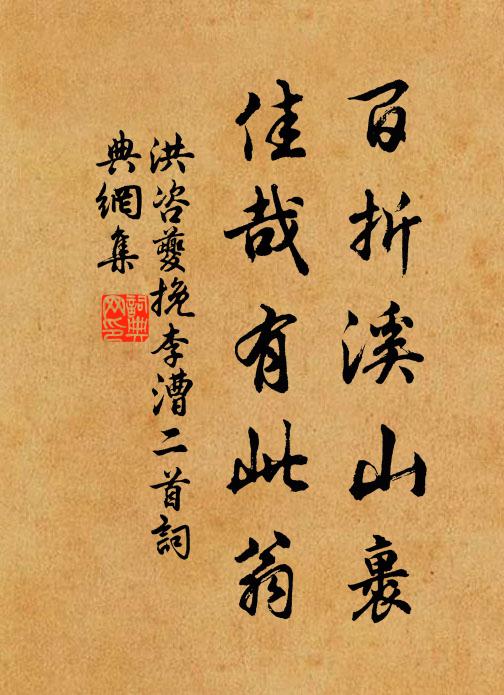 百折溪山裹
佳哉有此翁
洪咨夔挽李漕二首詞
典網集
詞典網印